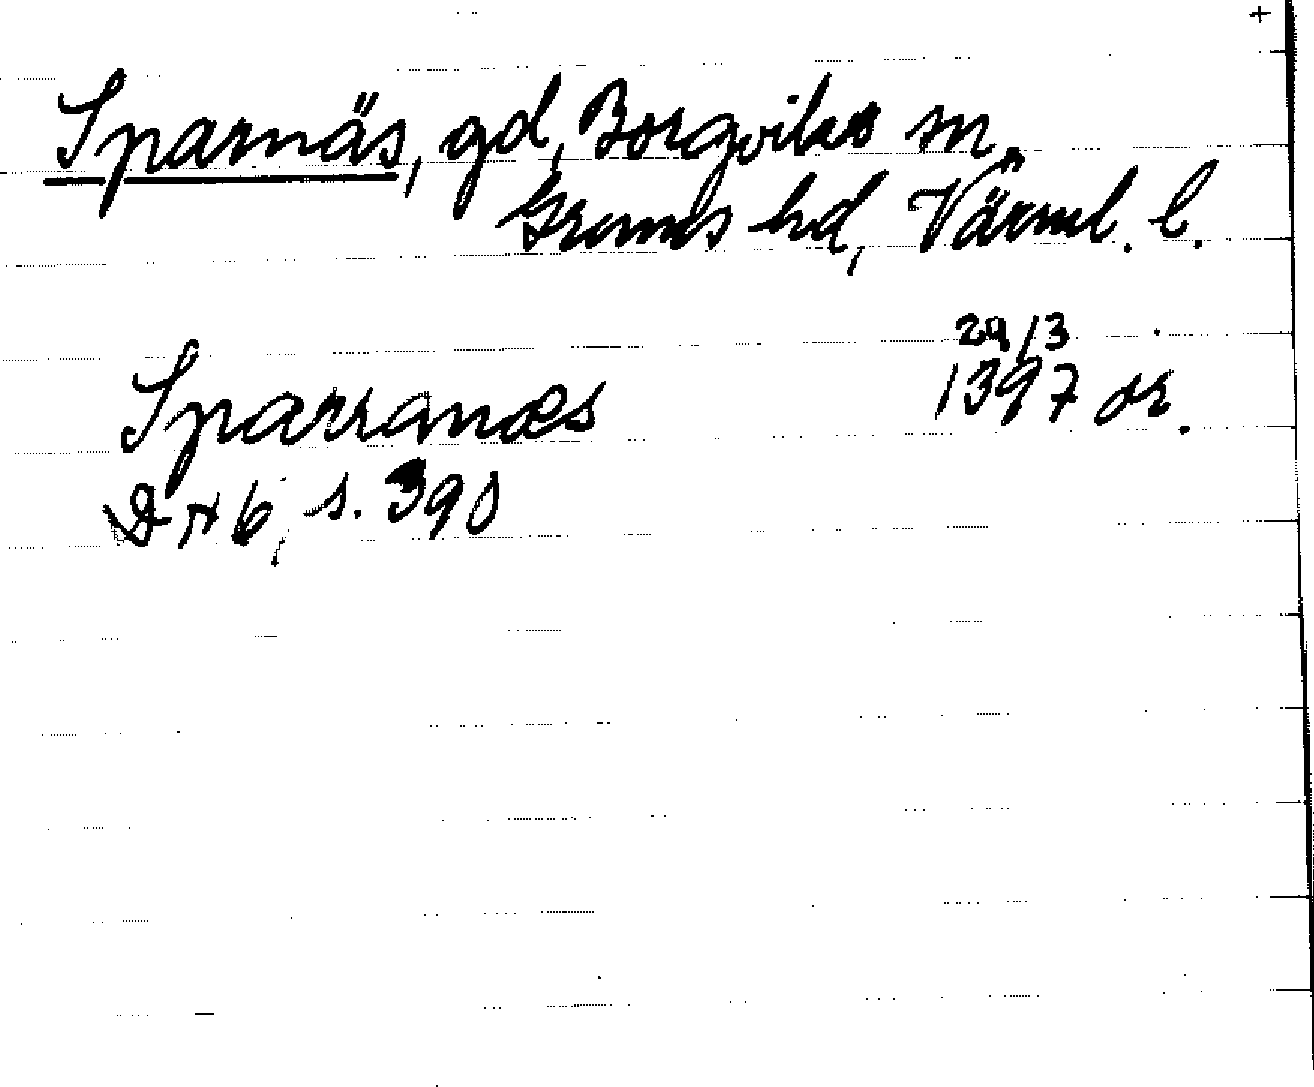 +
Sparnäs, gd, Borgviks sn,
Grums hd, Värml. l.
Sparranæs 29/3 1397 or.
DN 6, s. 390